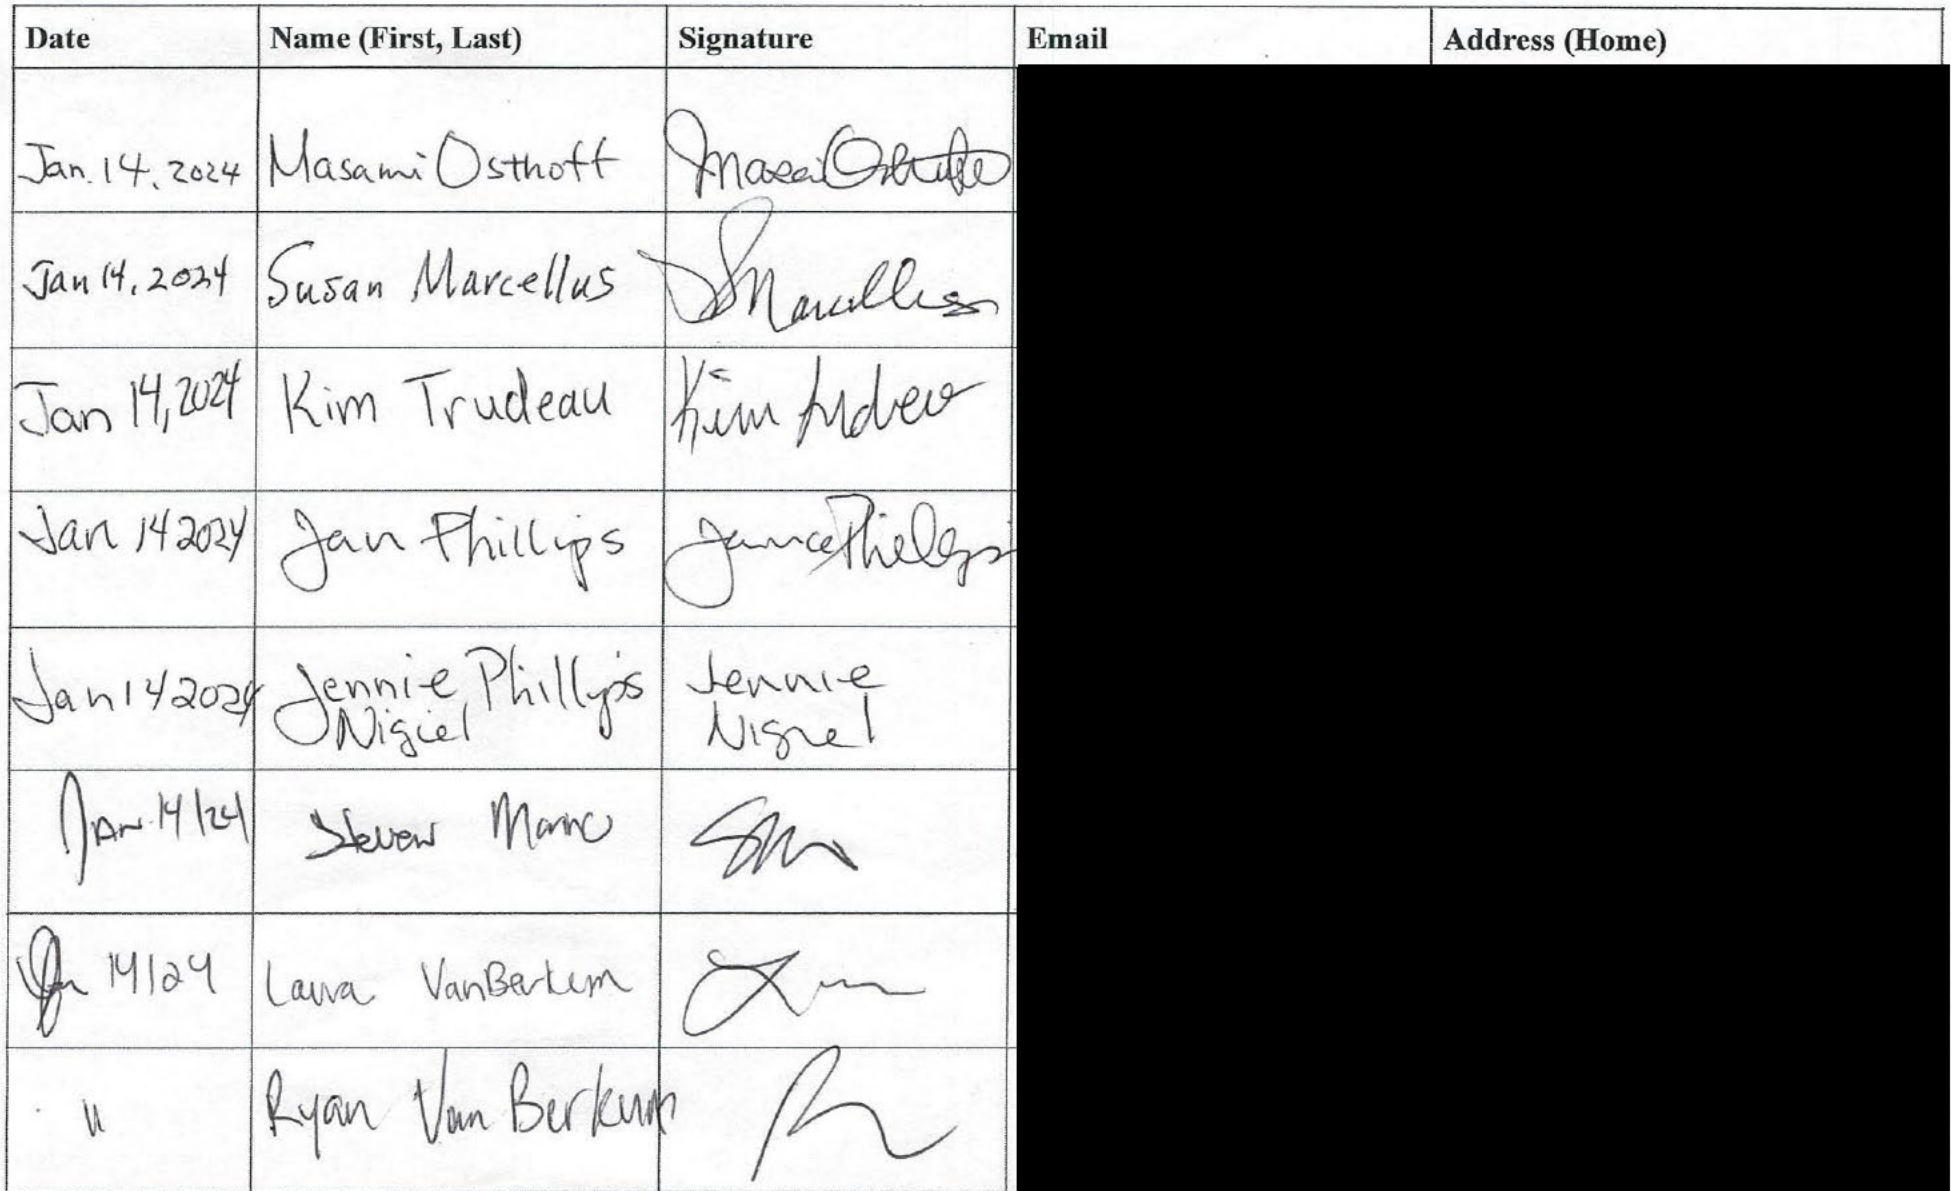 Date Name (First, Last) Signature Email Address (Home)
Jan. 14, 2024 Masami Osthoff
Jan 14, 2024 Susan Marcellus SMarcellus
Jan 14, 2024 Kim Trudeau Kim
Jan 14 2024 Jan Phillips Janice Phillips
Jan 14 2024 Jennie Phillips Jennie
Nigiel Nigiel
Jan. 14/24 Steven
Jan 14/24 Laura VanBerkum
" Ryan Van Berkum